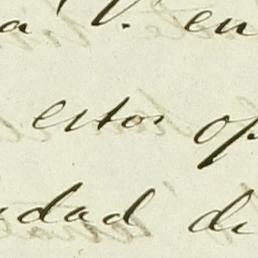 a V. en
estos op
dad de